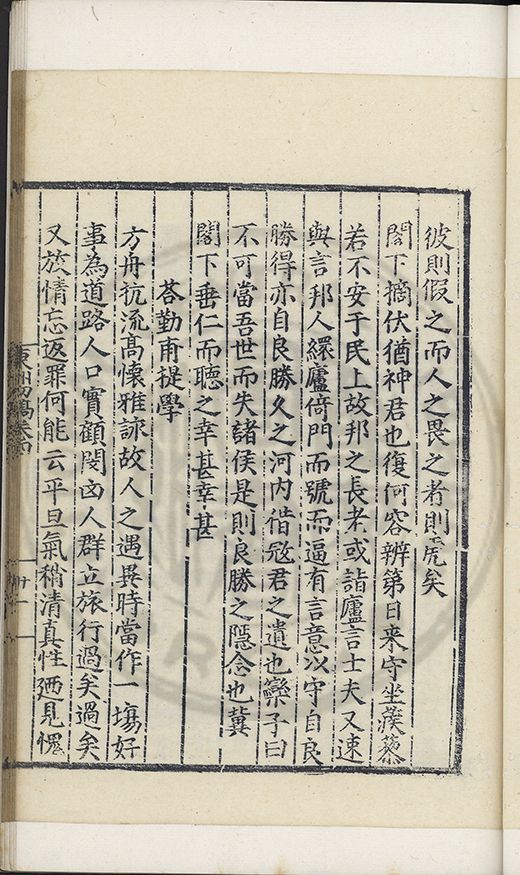 彼則假之而人之畏之者則虎矣
閣下擿伏猶神君也復何容辨第日来守坐蒺藜
若不安于民上故邦之長老或詣廬言士夫又速
與言邦人繯廬倚門而號而逼有言意以守自良
勝得亦自良勝久之河内借寇君之遺也欒子曰
不可當吾世而失諸侯是則良勝之隠念也冀
閣下垂仁而聽之幸甚幸甚
荅勤甫提學
方舟抗流髙懐雅詠故人之遇異時當作一塲好
事為道路人口實顧閔凶人群立旅行過矣過矣
又放情忘返罪何能云平旦氣稍清真性廼見愧
東洲初稿卷四
廿一